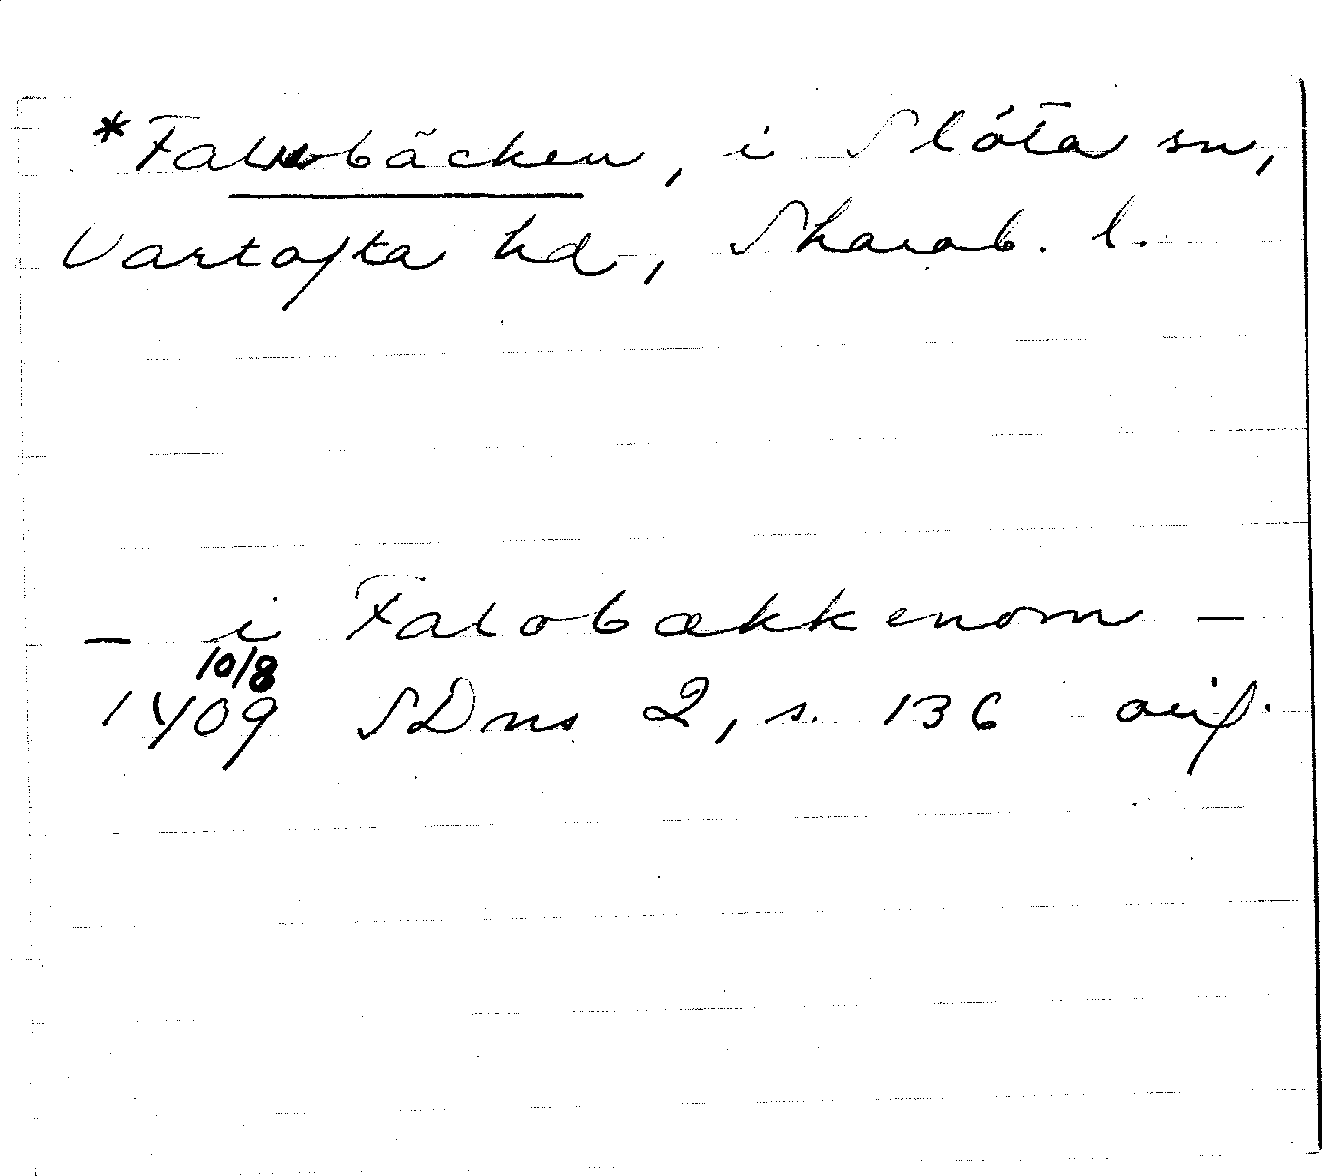 *Falubäcken, i Slöta sn,
Vartofta hd, Skarab. l.
- i Falobækkenom -
10/8
1409 SDns 2, s. 136 orig.